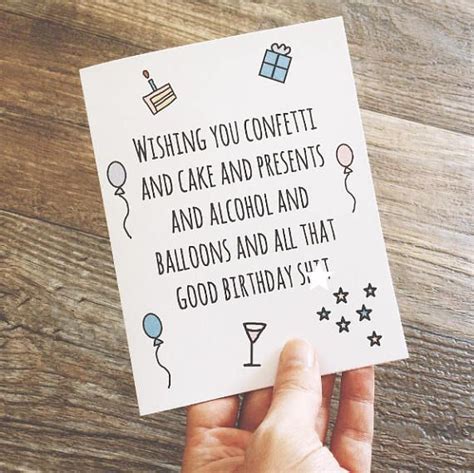 WISHING YOU CONFETTI
AND CAKE AND PRESENTS
AND ALCOHOL AND
BALLOONS AND ALL THAT
GOOD BIRTHDAY SHIT